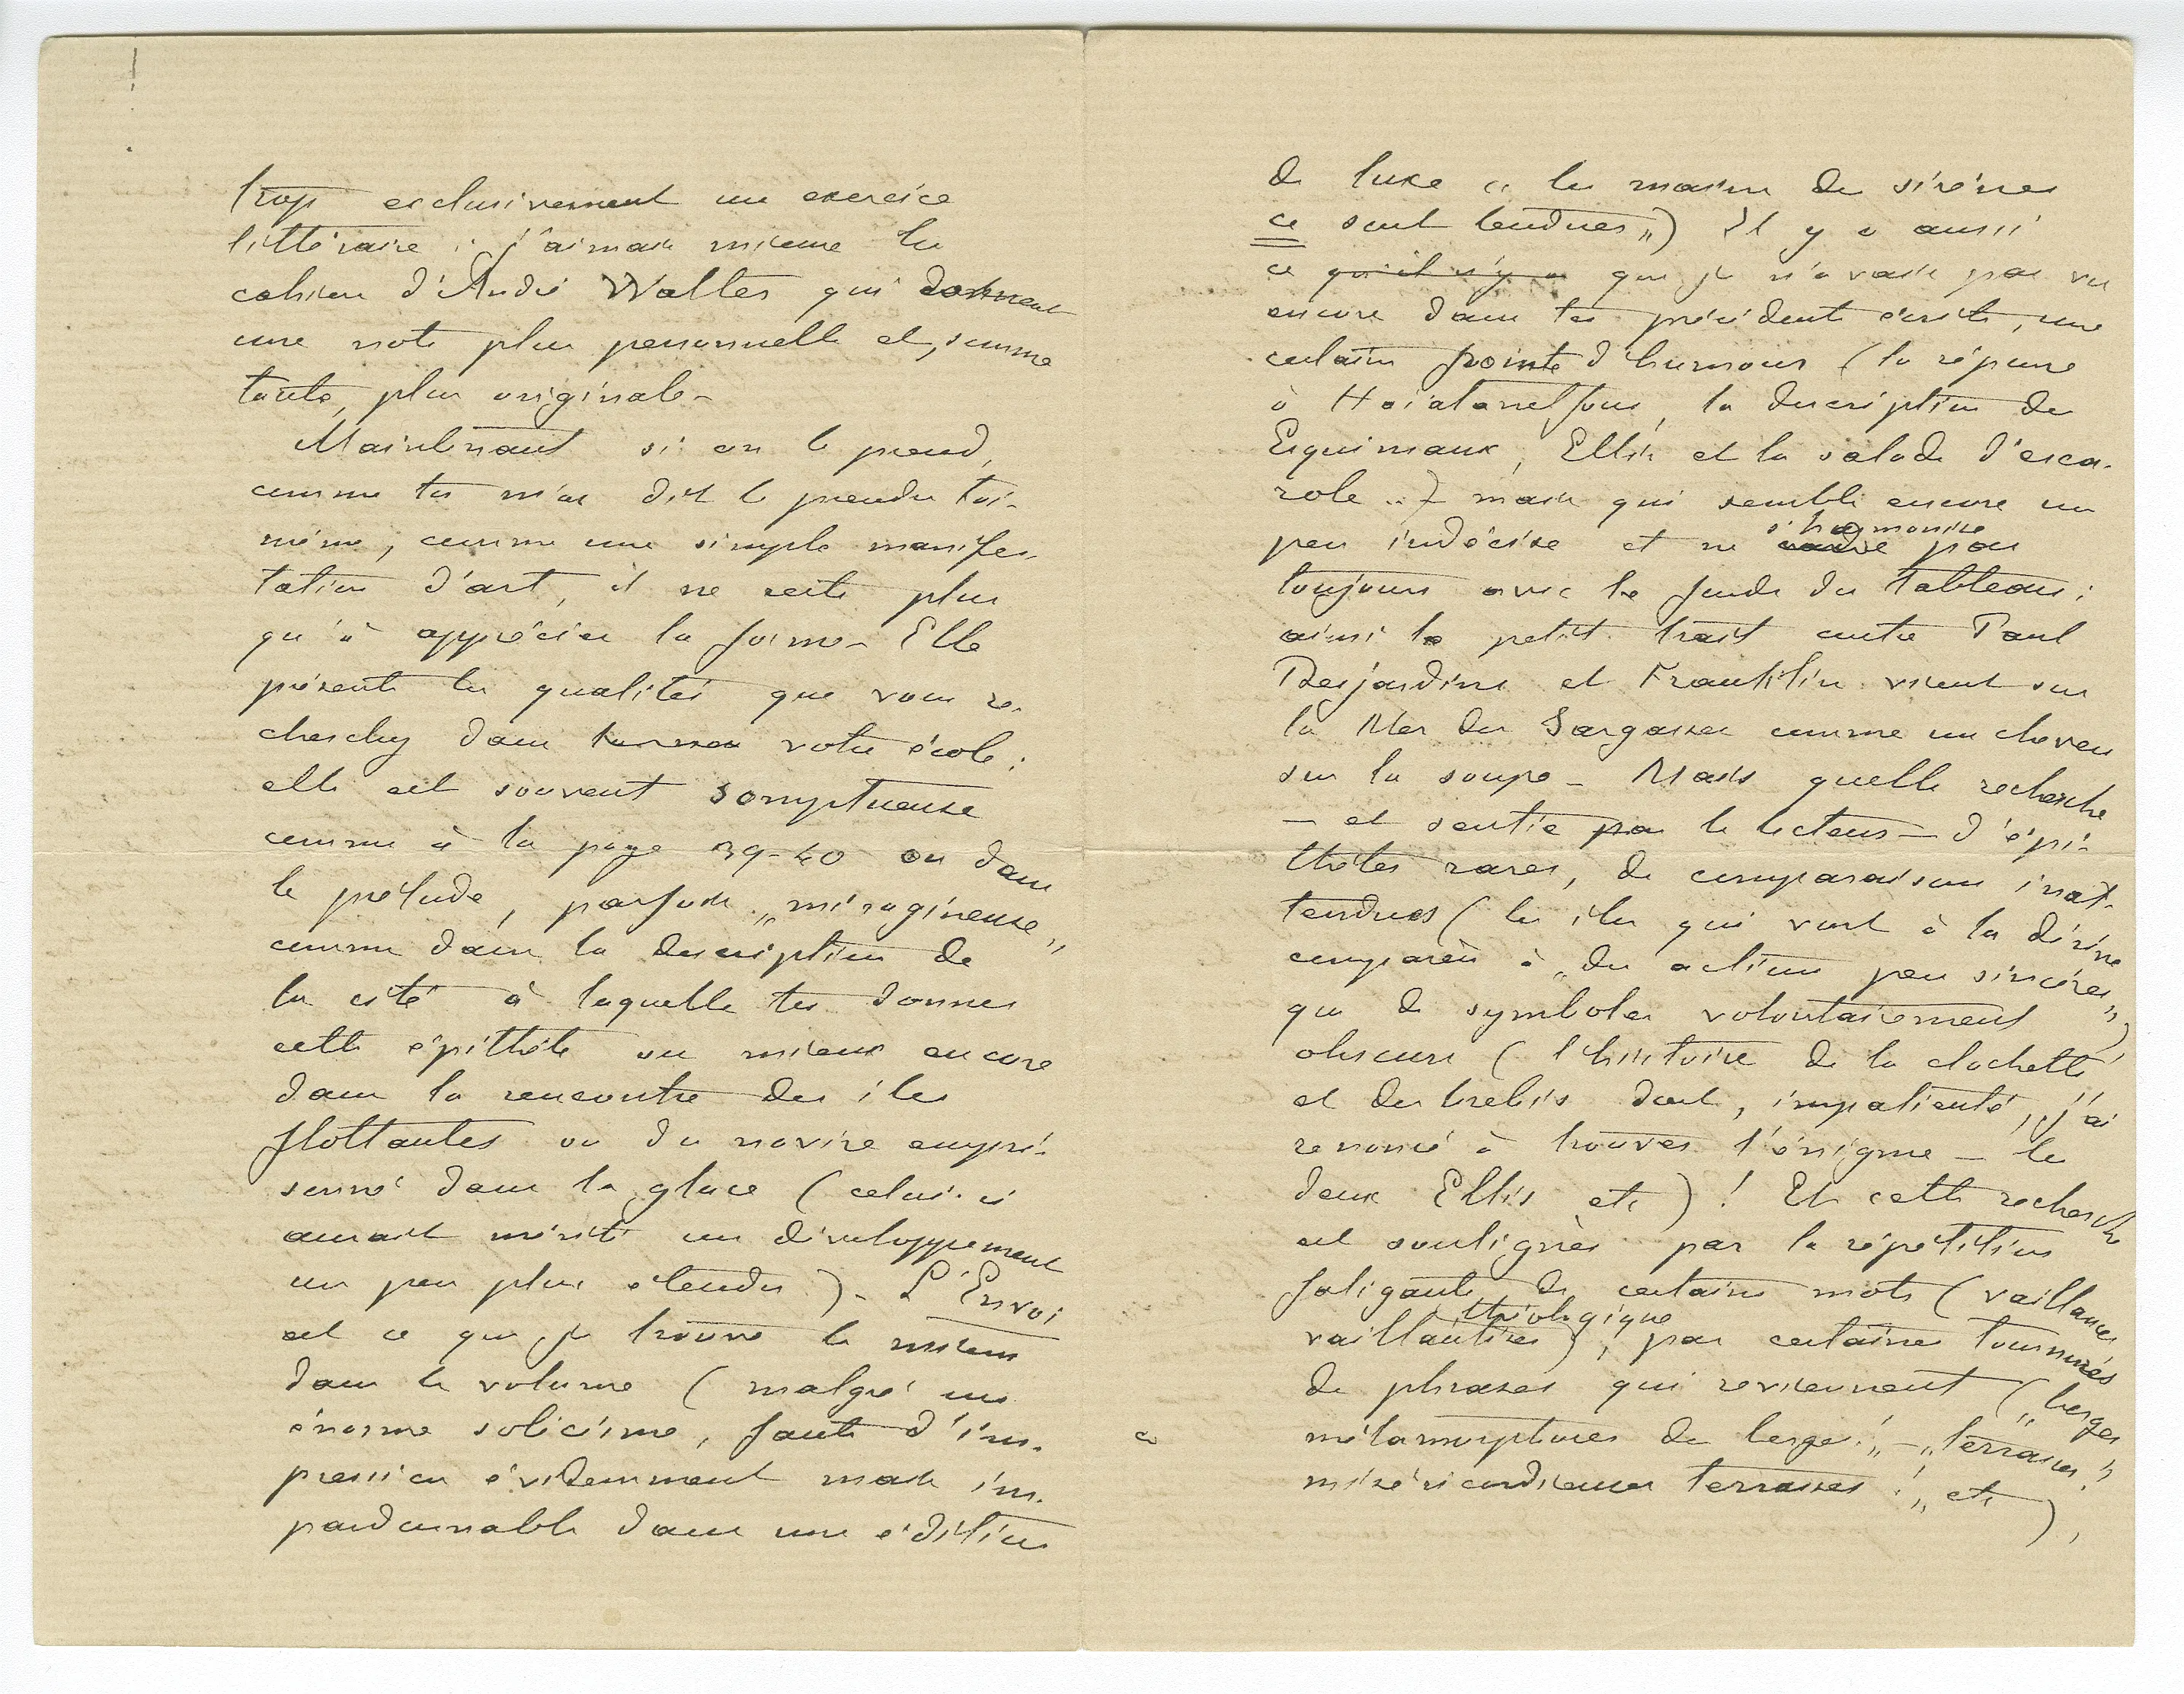 trop exclusivement un exercice
littéraire : j'aimais mieux les
cahiers d'André Walter qui donnent
une note plus personnelle et, somme
toute, plus originale –
Maintenant si on le prend,
comme tu m'as dit le prendre toi-
même, comme une simple manifes-
tation d'art, il ne reste plus
qu'à apprécier la forme – Elle
présente les qualités que vous re-
cherchez dans votre école ;
elle est souvent somptueuse
comme à la page 39-40 ou dans
le prélude, parfois „miragineuse"
comme dans la description de
la cité à laquelle tu donnes
cette épithète ou mieux encore
dans la rencontre des îles
flottantes ou du navire empri-
sonné dans la glace (celui-ci
aurait mérité un développement
un peu plus étendu) – L'Envoi
est ce que je trouve le mieux
dans le volume (malgré un
énorme solécisme, faute d'im-
pression évidemment mais im-
pardonnable dans une édition
de luxe « les mains des sirènes
ce sont tendues ") Il y a aussi
ce qu'il n'y a que je n'avais pas vu
encore dans tes précédents écrits, une
certaine pointe d'humour (la réponse
à , la description des
Esquimaux, Ellis et la salade d'esca-
role ..) mais qui semble encore un
peu indécise et ne s'harmonise pas
toujours avec le fonds du tableau ;
ainsi le petit trait entre Paul
Desjardins et Franklin vient sur
la Mer des Sargasses comme un cheveu
sur la soupe – Mais quelle recherche
– et sentie par le lecteur – d'épi-
thètes rares, de comparaisons inat-
tendues (les îles qui vont à la dérive
comparées à „des actions peu sincères")
que de symboles volontairement
obscurs (l'histoire de la clochette
et des brebis dont, impatienté, j'ai
renoncé à trouver l'énigme – les
deux Ellis etc) ! Et cette recherche
est soulignée par la répétition
fatigante de certains mots (vaillances
vaillantises, théologique), par certaines tournures
de phrases qui reviennent („berges
métamorphoses des berges !„ – „terrasses !
miséricordieuses terrasses !„ etc),